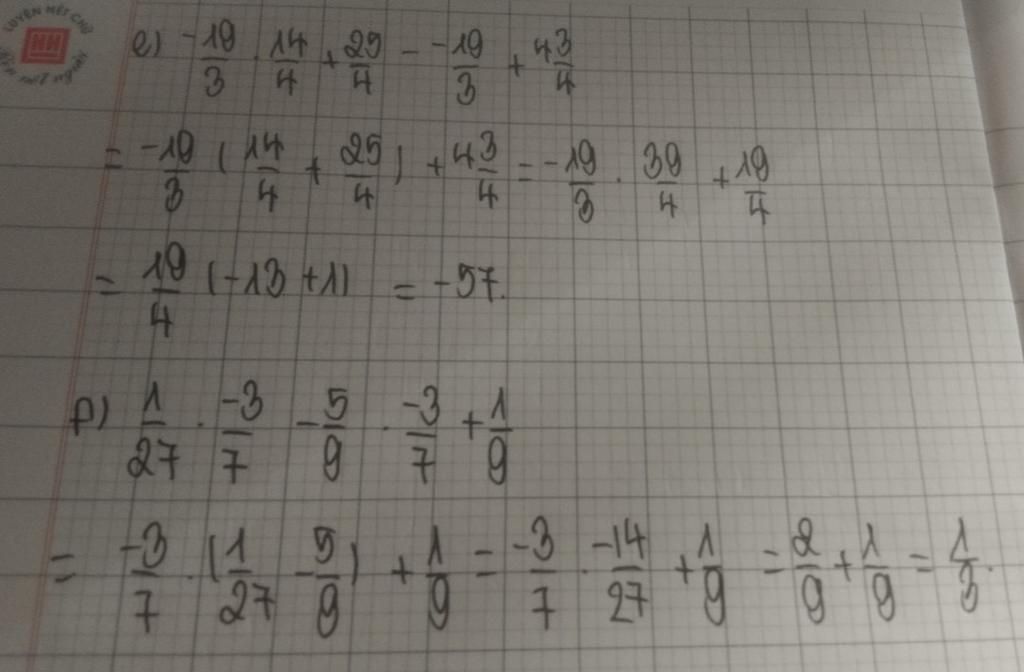 LUYỆN NÉT CHỮ
HH
RÈN NẾT NGƯỜI
e) -19/3 . 14/4 + 25/4 - -19/3 + 4 3/4
= -19/3 ( 14/4 + 25/4 ) + 4 3/4 = -19/3 . 39/4 + 19/4
= 19/4 (-13 + 1) = -57.
f) 1/27 . -3/7 - 5/9 . -3/7 + 1/9
= -3/7 . ( 1/27 - 5/9 ) + 1/9 = -3/7 . -14/27 + 1/9 = 2/9 + 1/9 = 1/3.